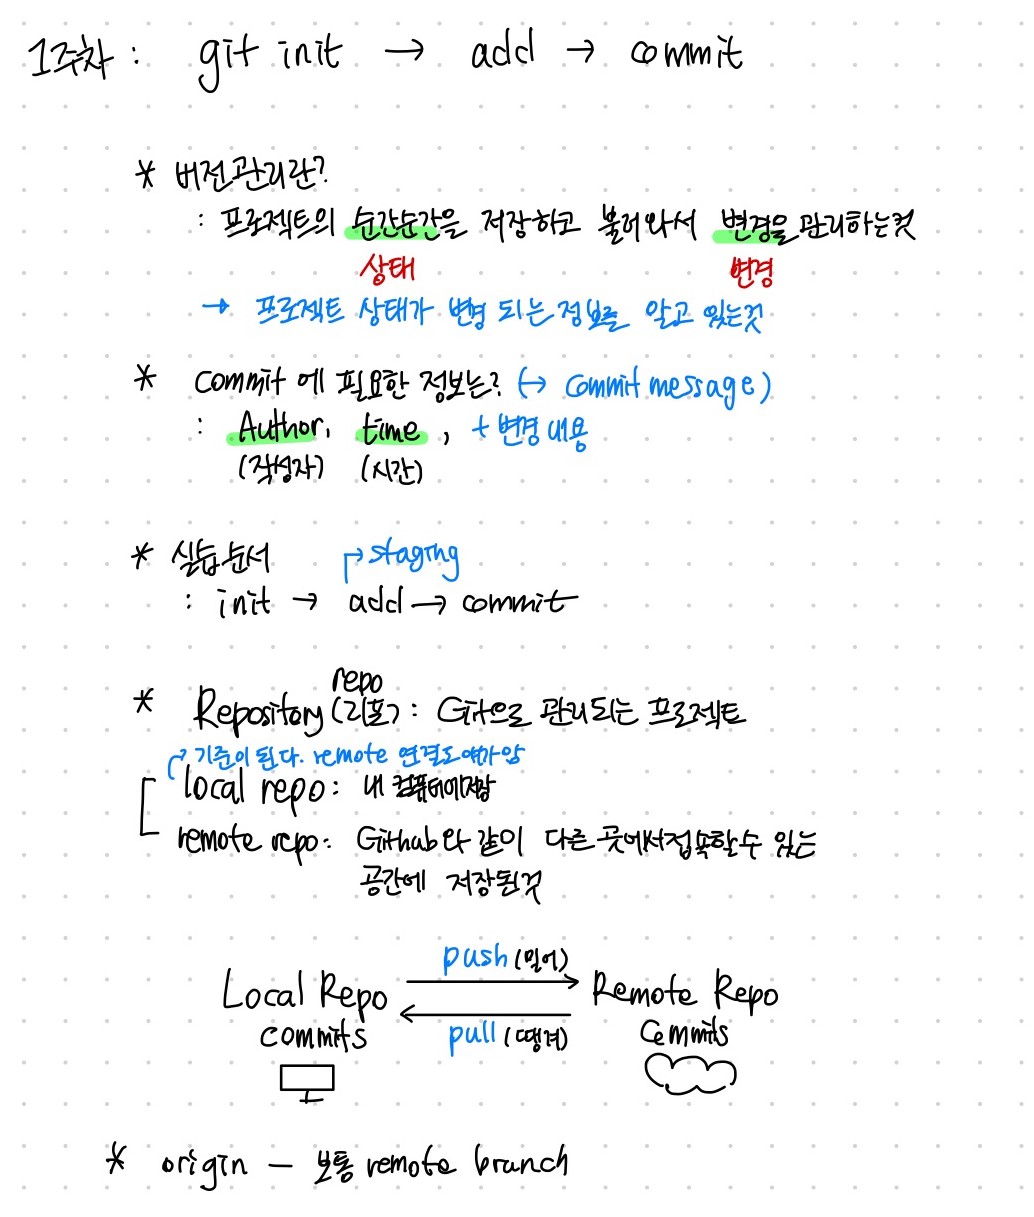 1주차 : git init → add → commit
* 버전관리란?
: 프로젝트의 순간순간을 저장하고 불러와서 변경을 관리하는것
상태 변경
→ 프로젝트 상태가 변경 되는 정보를 알고 있는것
* Commit 에 필요한 정보는? (→ Commit message)
: Author, time, + 변경 내용
(작성자) (시간)
* 실습순서
→ staging
: init → add → commit
repo
* Repository (리포) : Git으로 관리되는 프로젝트
기준이 된다. remote 연결도 얘가 함
local repo : 내 컴퓨터에 저장
remote repo : Github와 같이 다른 곳에서 접속할 수 있는
공간에 저장된 것
push (밀어)
Local Repo → Remote Repo
←
commits pull (땡겨) Commits
* origin – 보통 remote branch